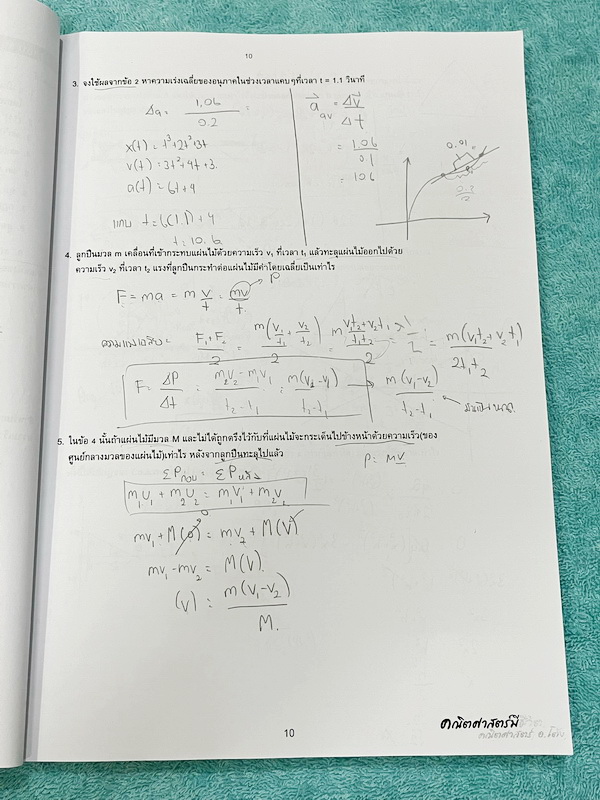 10
3. จงใช้ผลจากข้อ 2 หาความเร่งเฉลี่ยของอนุภาคในช่วงเวลาแคบๆที่เวลา t = 1.1 วินาที
Δa = 1.06 / 0.2 =
x(t) = t³+2t²+3t
v(t) = 3t²+4t+3.
a(t) = 6t+4
แทน t = 6(1.1)+4
t = 10.6
a⃗ av = Δv⃗ / Δt
= 1.06 / 0.1
= 10.6
0.01
0.2 / 2
4. ลูกปืนมวล m เคลื่อนที่เข้ากระทบแผ่นไม้ด้วยความเร็ว v₁ ที่เวลา t₁ แล้วทะลุแผ่นไม้ออกไปด้วย
ความเร็ว v₂ ที่เวลา t₂ แรงที่ลูกปืนกระทำต่อแผ่นไม้มีค่าโดยเฉลี่ยเป็นเท่าไร
F = ma = m v/t = mv/t. P
F₁+F₂ / 2 = m(v₁/t₁ + v₂/t₂) / 2 = m(v₁t₂+v₂t₁ / t₁t₂) / 2 × 1/2 = m(v₁t₂+v₂t₁) / 2t₁t₂
F = ΔP / Δt = m₂v₂-m₁v₁ / t₂-t₁ = m(v₂-v₁) / t₂-t₁ → m(v₁-v₂) / t₂-t₁
5. ในข้อ 4 นั้นถ้าแผ่นไม้มีมวล M และไม่ได้ถูกตรึงไว้กับที่แผ่นไม้จะกระเด็นไปข้างหน้าด้วยความเร็ว(ของ
ศูนย์กลางมวลของแผ่นไม้)เท่าไร หลังจากลูกปืนทะลุไปแล้ว
P = mv
ΣPก่อน = ΣPหลัง
m₁u₁ + m₂u₂ = m₁v₁ + m₂v₂
mv₁ + M(0) = mv₂ + M(V)
0
mv₁ - mv₂ = M(V).
(v) = m(v₁-v₂) / M.
คณิตศาสตร์มี
10